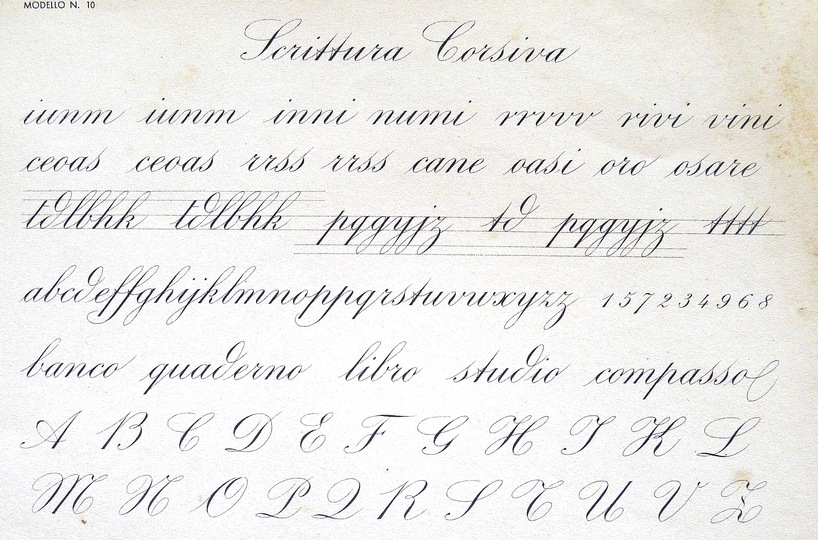 MODELLO N. 10
Scrittura Corsiva
iunm iunm inni numi rrvvv rivi vini
ceoas ceoas rrss rrss cane oasi oro osare
tdlbhk tdlbhk pqgyjz td pqgyjz tttt
abcdeffghijklmnoppqrstuvwxyzz 157234968
banco quaderno libro studio compasso
A B C D E F G H I K L
M N O P Q R S T U V Z